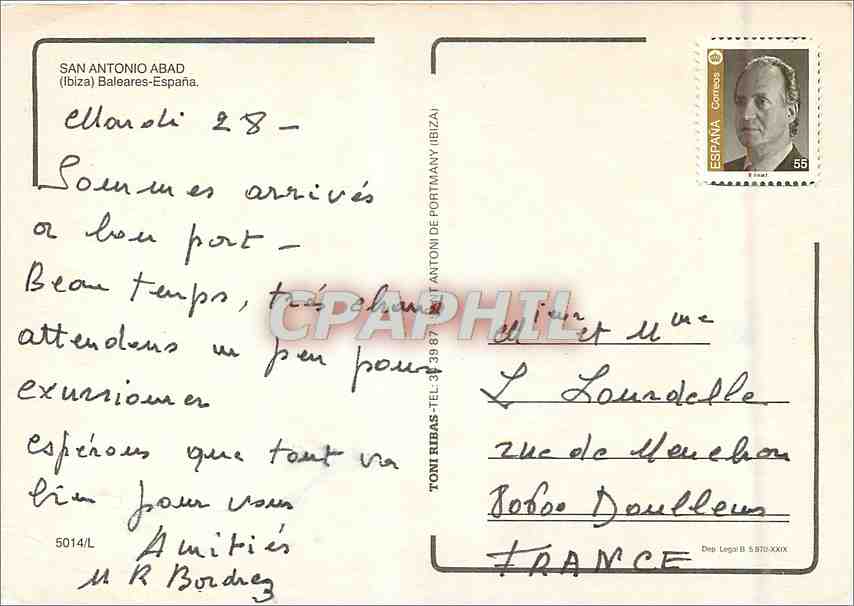 SAN ANTONIO ABAD
(Ibiza) Baleares-España.
Mardi 28 -
Sommes arrivés
a bon port -
Beau temps, très chaud
attendons un peu pour
excursionner
espérons que tout va
bien pour vous
Amitiés
M R Bordrez
5014/L
TONI RIBAS-TEL: 34 39 87 ANTONI DE PORTMANY (IBIZA)
ESPAÑA
Correos
55
CPAPHIL
et Mme
L Lourdelle
rue de Menchon
80600 Doullens
FRANCE
Dep. Legal B. 5.870-XXIX